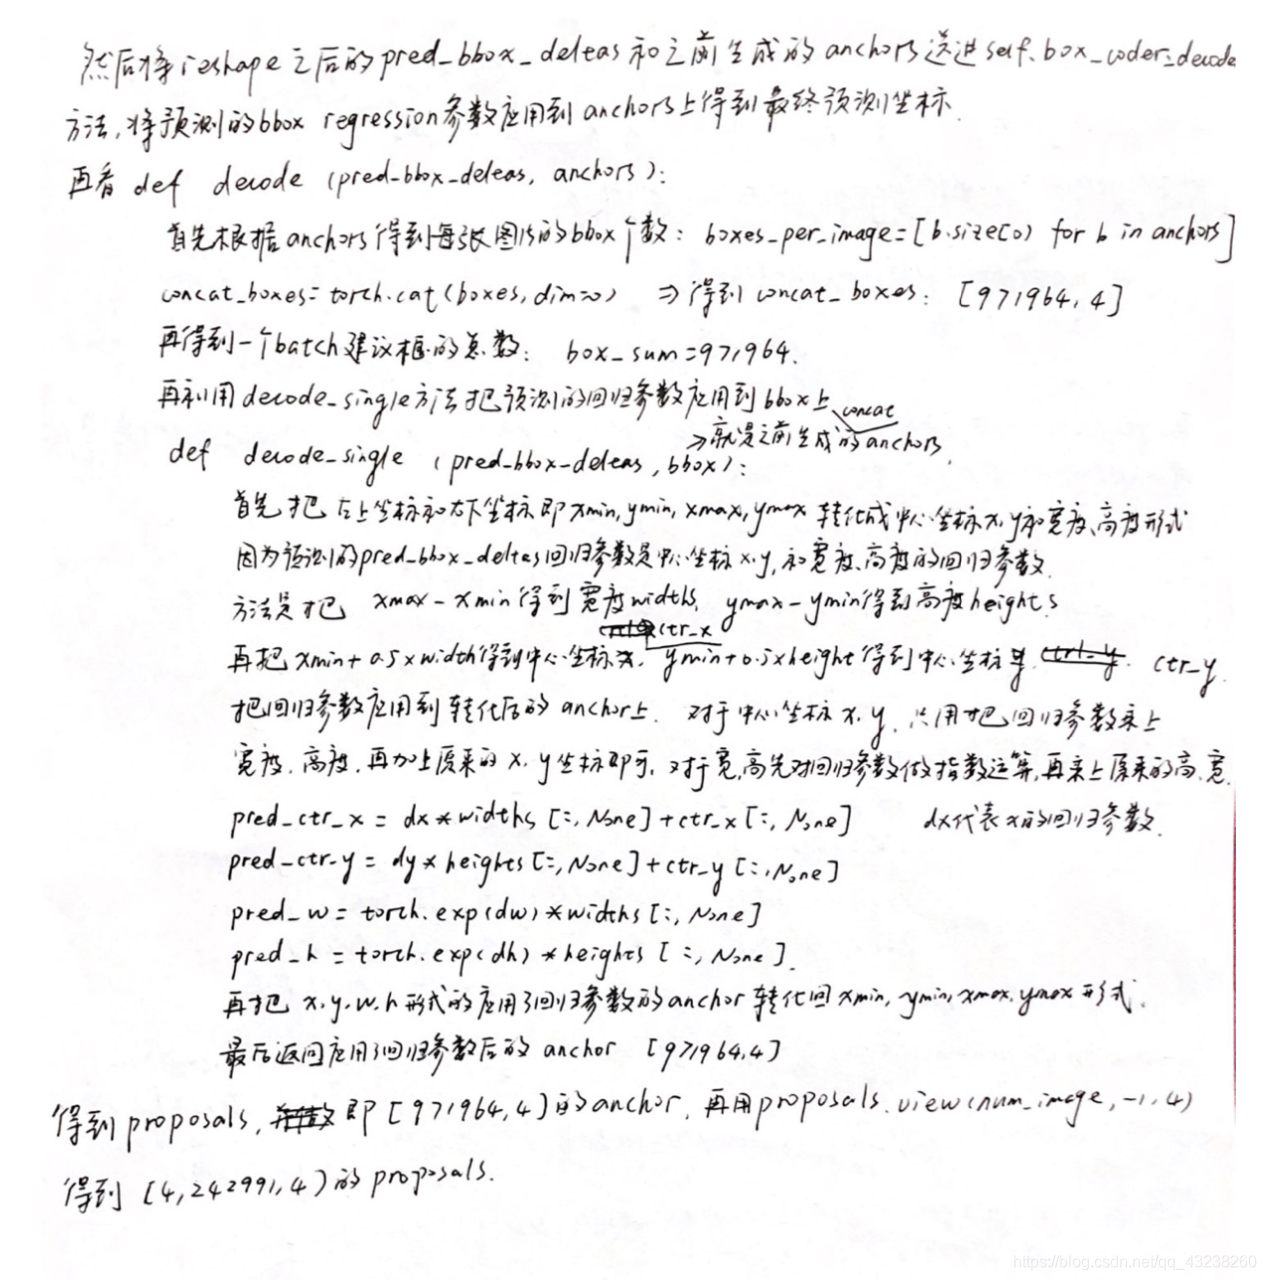 然后将reshape之后的pred_bbox_deltas和之前生成的anchors送进self.box_coder.decode
方法,将预测的bbox regression参数应用到anchors上得到最终预测坐标.
再看 def decode (pred_bbox_deltas, anchors):
首先根据anchors得到每张图片的bbox个数: boxes_per_image=[b.size(0) for b in anchors]
concat_boxes=torch.cat(boxes,dim=0) ⇒ 得到 concat_boxes: [971964,4]
再得到一个batch建议框的总数: box_sum=971964.
再利用decode_single方法把预测的回归参数应用到bbox上
concat
→就是之前生成的anchors.
def decode_single (pred_bbox_deltas, bbox):
首先把左上坐标和右下坐标即xmin,ymin,xmax,ymax转化成中心坐标x,y和宽度、高度形式
因为预测的pred_bbox_deltas回归参数是中心坐标x.y,和宽度、高度的回归参数.
方法是把 xmax-xmin得到宽度widths, ymax-ymin得到高度heights
ctr_x
再把xmin+0.5×width得到中心坐标x, ymin+0.5×height得到中心坐标y. ctr_y.
把回归参数应用到转化后的anchor上. 对于中心坐标x.y.只用把回归参数乘上
宽度.高度.再加上原来的x.y坐标即可,对于宽,高先对回归参数做指数运算,再乘上原来的高、宽.
pred_ctr_x = dx*widths[:,None]+ctr_x[:,None] dx代表x的回归参数.
pred_ctr_y = dy*heights[:,None]+ctr_y[:,None]
pred_w = torch.exp(dw)*widths[:,None]
pred_h = torch.exp(dh)*heights[:,None].
再把 x.y.w.h形式的应用了回归参数的anchor转化回xmin,ymin,xmax,ymax形式.
最后返回应用了回归参数后的 anchor [971964,4]
得到proposals, 即[971964,4]的anchor, 再用proposals.view(num_image,-1,4)
得到 [4,242991,4)的proposals.
https://blog.csdn.net/qq_43238260